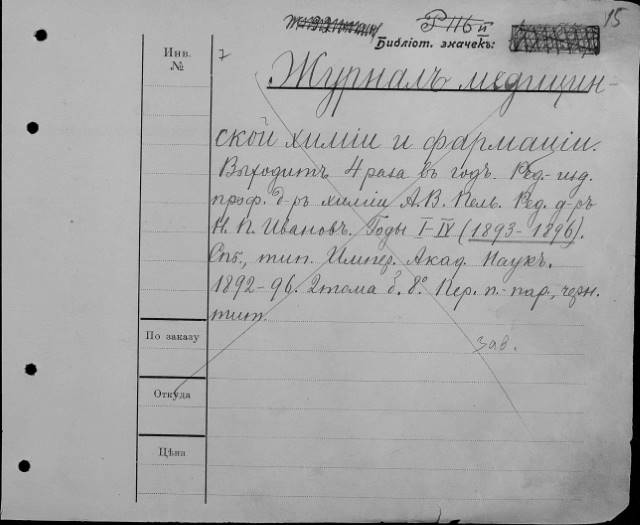 Р 116 II
15
Библіот. значекъ:
Инв. №
7
Журналъ медицин-
ской химіи и фармаціи.
Выходитъ 4 раза въ годъ. Ред.-изд.
проф. д-ръ химіи А. В. Пель. Ред. д-ръ
Н. П. Ивановъ. Годы I-IV (1893-1896).
Спб., тип. Импер. Акад. Наукъ.
1892-96. 2 тома б. 8°. Пер. п.-пар., черн.
тит.
зав.
По заказу
Откуда
Цѣна